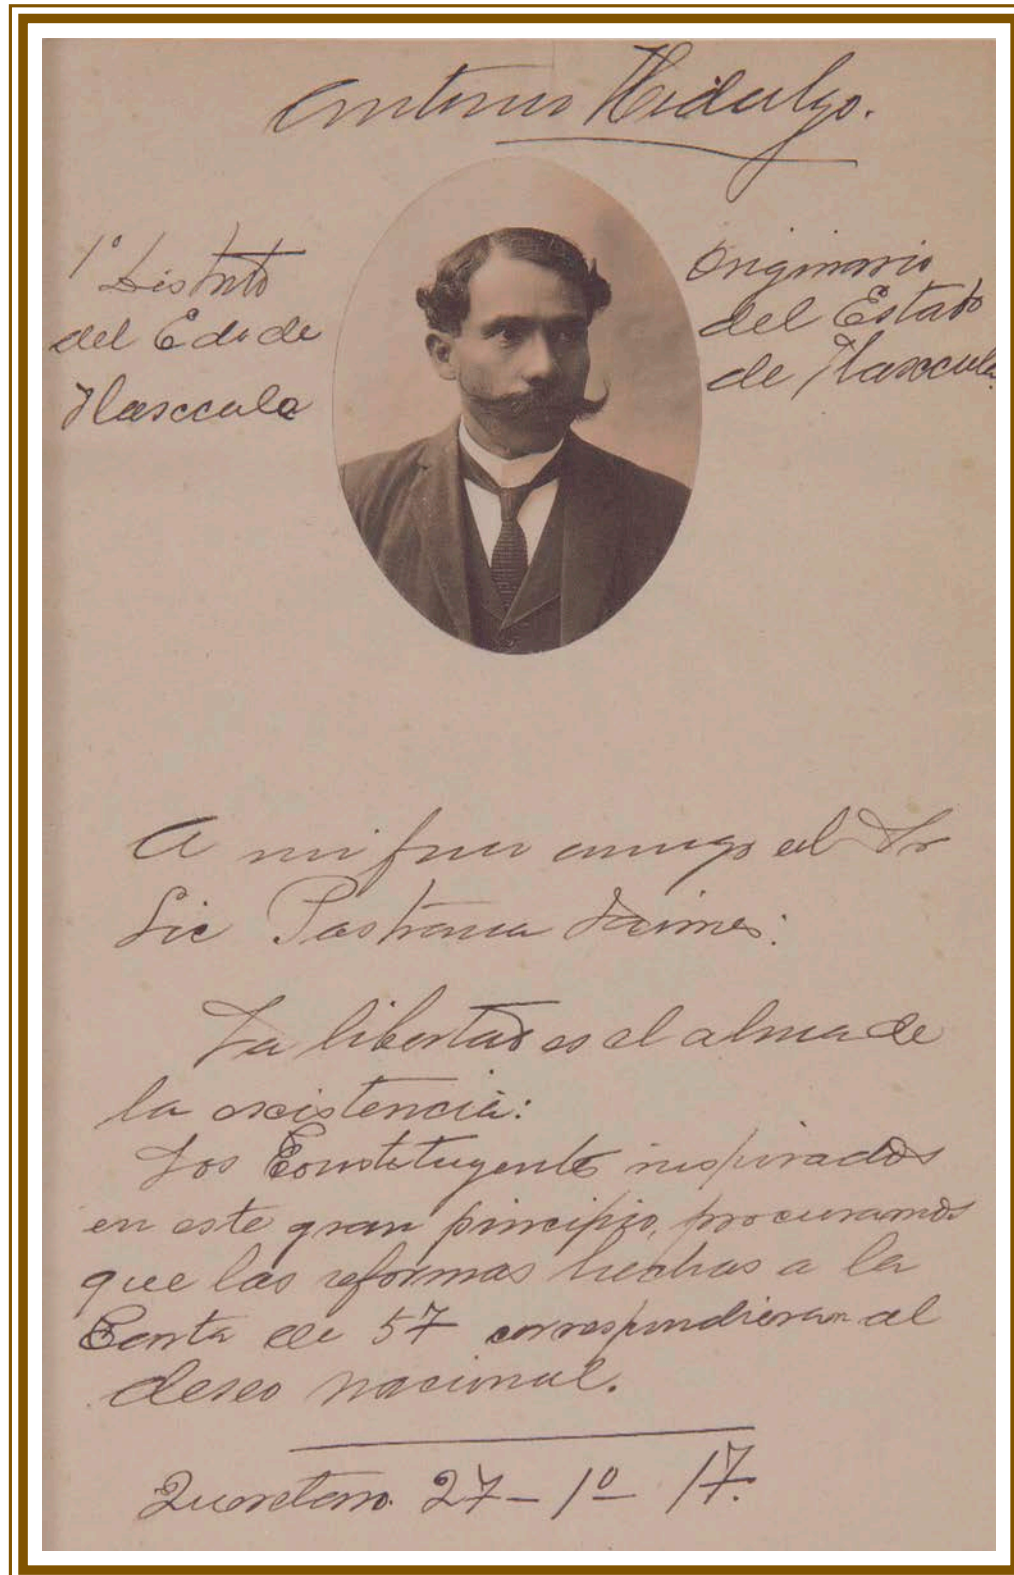 Antonio Hidalgo.
1º Distrito
del Edo de
Tlaxcala
Originario
del Estado
de Tlaxcala.
A mi fino amigo el Sr
Lic Pastrana Jaimes:
La libertad es el alma de
la existencia:
Los Constituyentes inspirados
en este gran principio, procuramos
que las reformas hechas a la
Carta de 57 correspondieran al
deseo nacional.
Queretaro. 27 - 1º - 17.